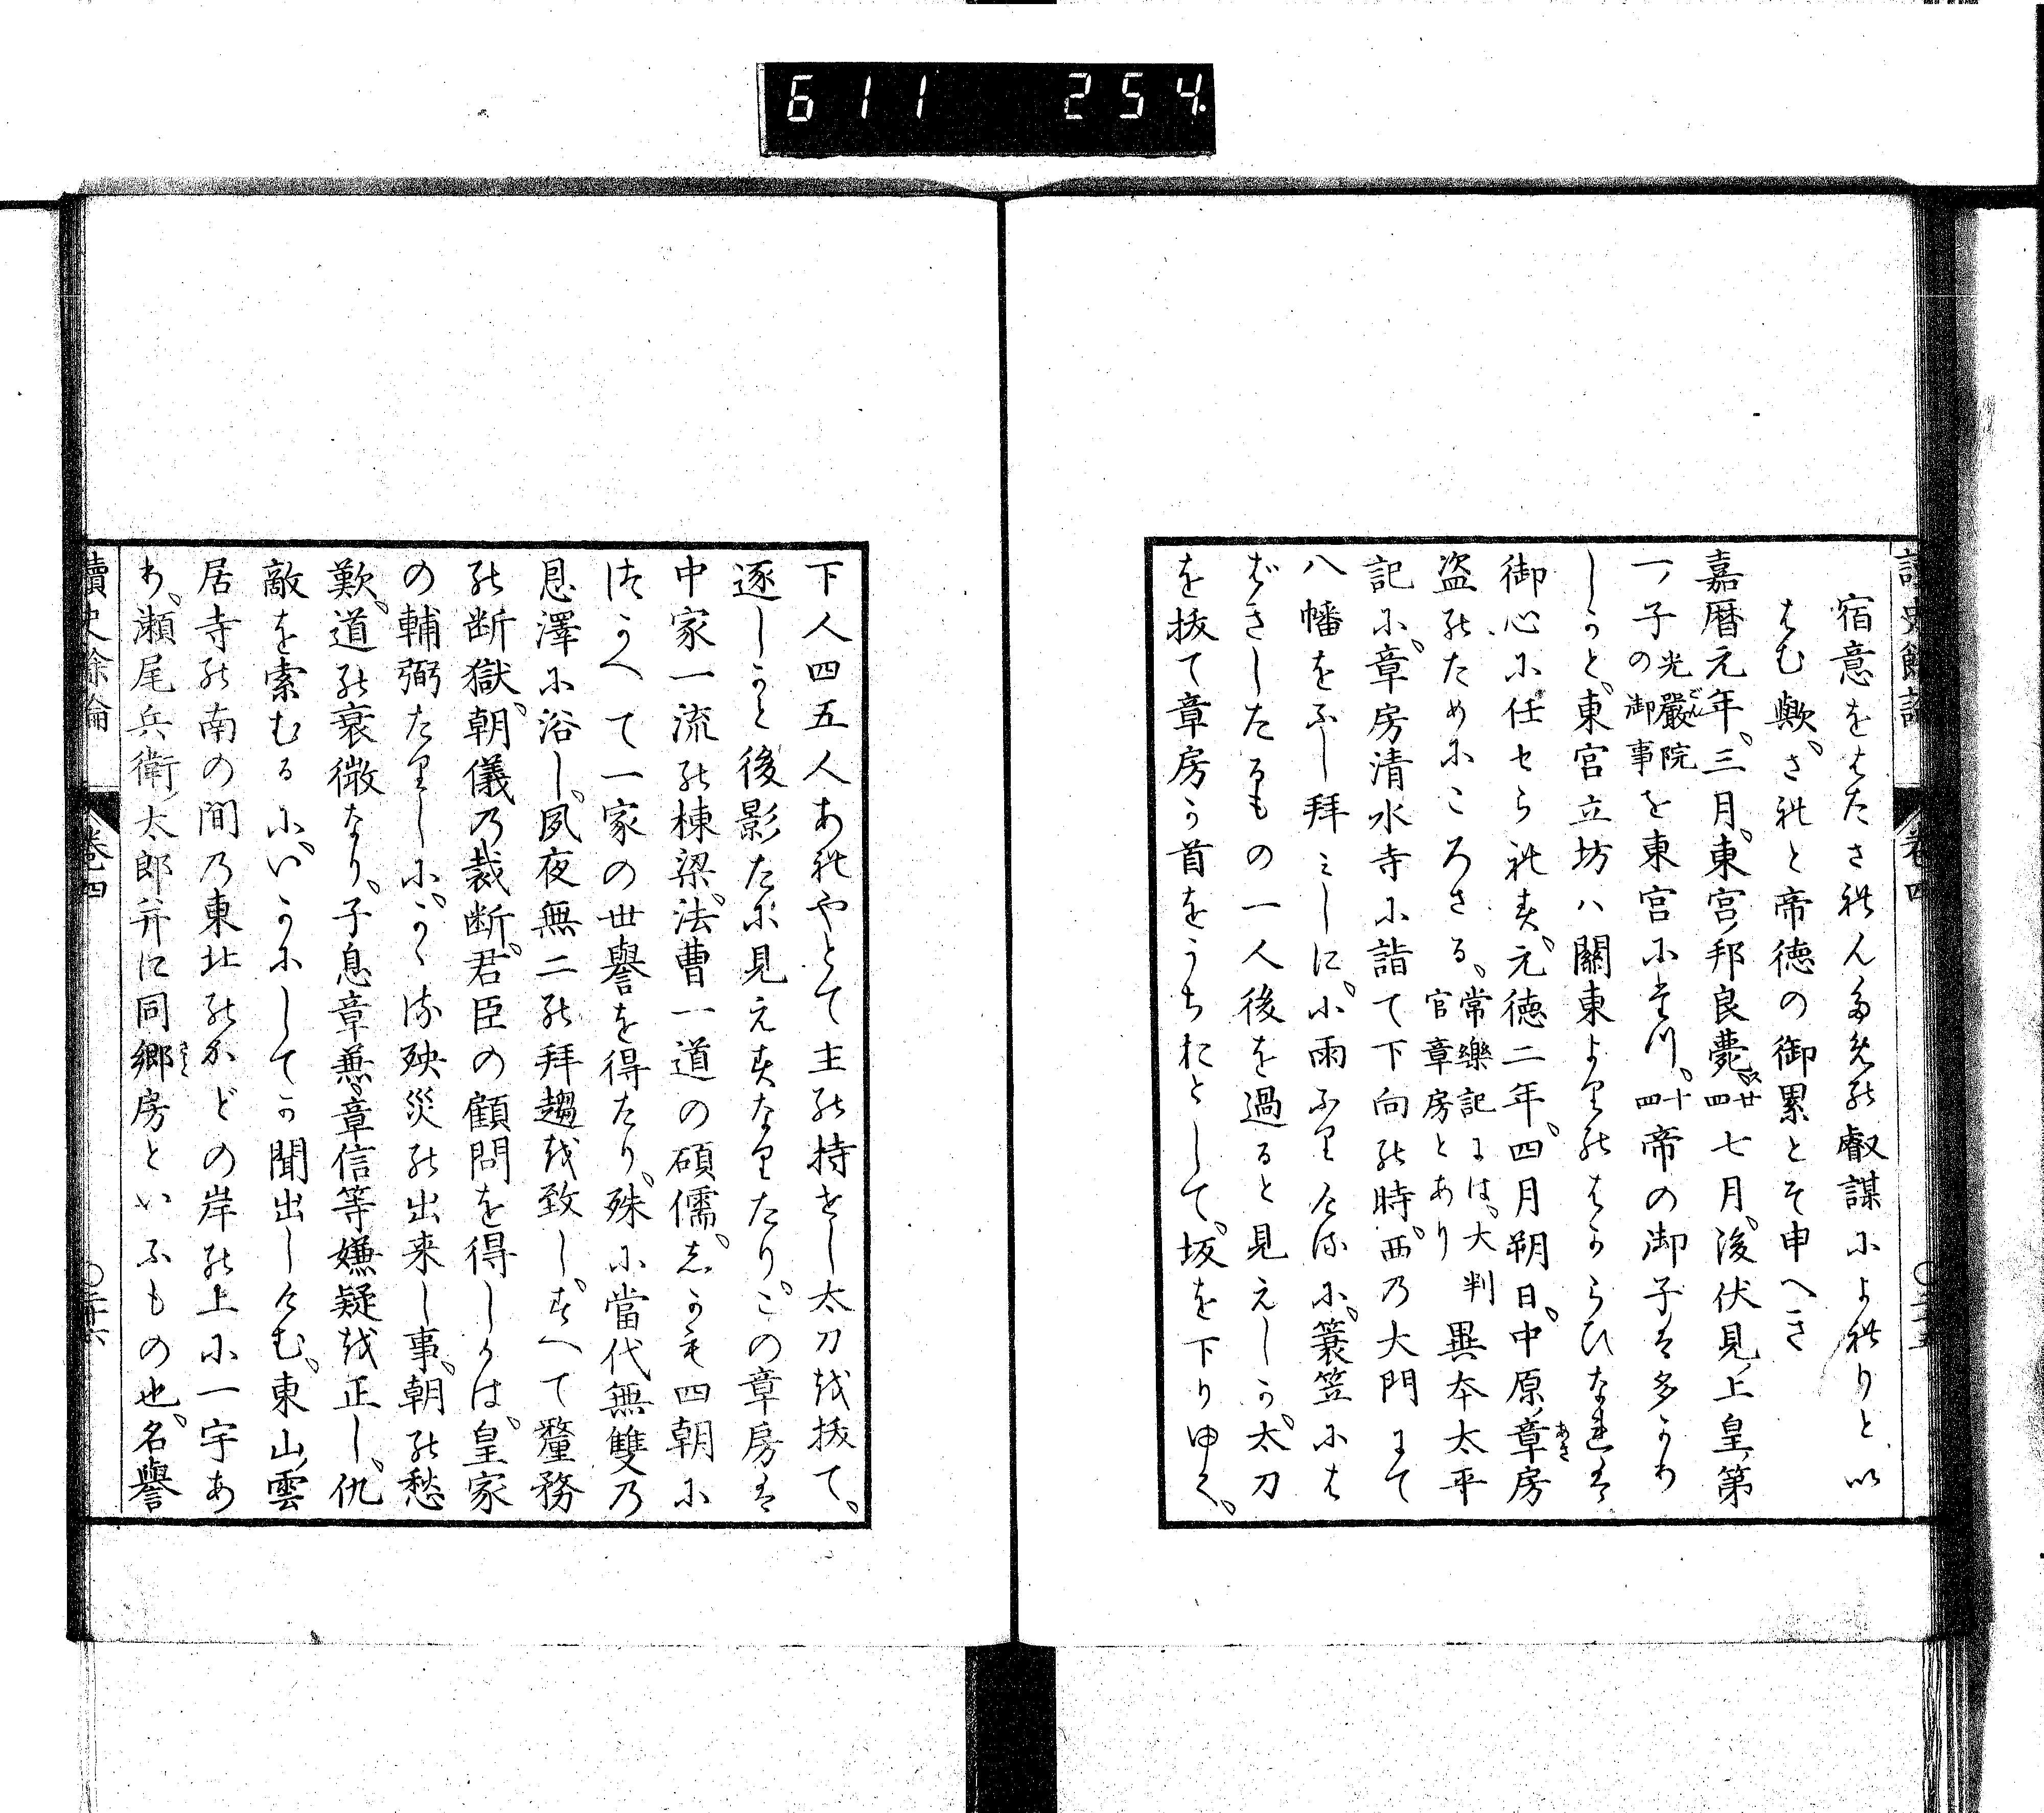 611 254
讀史餘論 卷四 〇三十五
宿意をはたされんための叡謀によれりとい
はむ歟、されと帝徳の御累とそ申へき
嘉暦元年、三月、東宮邦良薨、廿四七月、後伏見ノ上皇ノ第
一ノ子光嚴院の御事を東宮にたつ、十四帝の御子は多かり
しかと、東宮立坊ハ關東よりのはからひなれは
御心に任せられす、元徳二年、四月朔日、中原ノ章房
盗のためにころさる、常樂記には、大判官章房とあり異本太平
記に、章房清水寺に詣て下向の時、西乃大門にて
八幡をふし拜みしに、小雨ふりけるに、簑笠には
ばきしたるもの一人後を過ると見えしか、太刀
を拔て章房か首をうちおとして、坂を下り申く、
下人四五人あれやとて主の持せし太刀を拔て、
逐しかと後影たに見えすなりたり、この章房は
中家一流の棟梁、法曹一道の碩儒、しかも四朝に
つかへて一家の世譽を得たり、殊に當代無雙乃
恩澤に浴し、夙夜無二の拜趨を致し、すへて釐務
の断獄、朝儀乃裁断、君臣の顧問を得しかは、皇家
の輔弼たりしに、かゝる殃災の出来し事、朝の愁
歎、道の衰微なり、子息章兼、章信等嫌疑を正し、仇
敵を索むるに、いかにしてか聞出しけむ、東山ノ雲
居寺の南の間乃東北のかどの岸の上に一宇あ
り、瀬尾兵衛ノ太郎并に同郷房といふもの也、名譽
讀史餘論 卷四 〇三十六